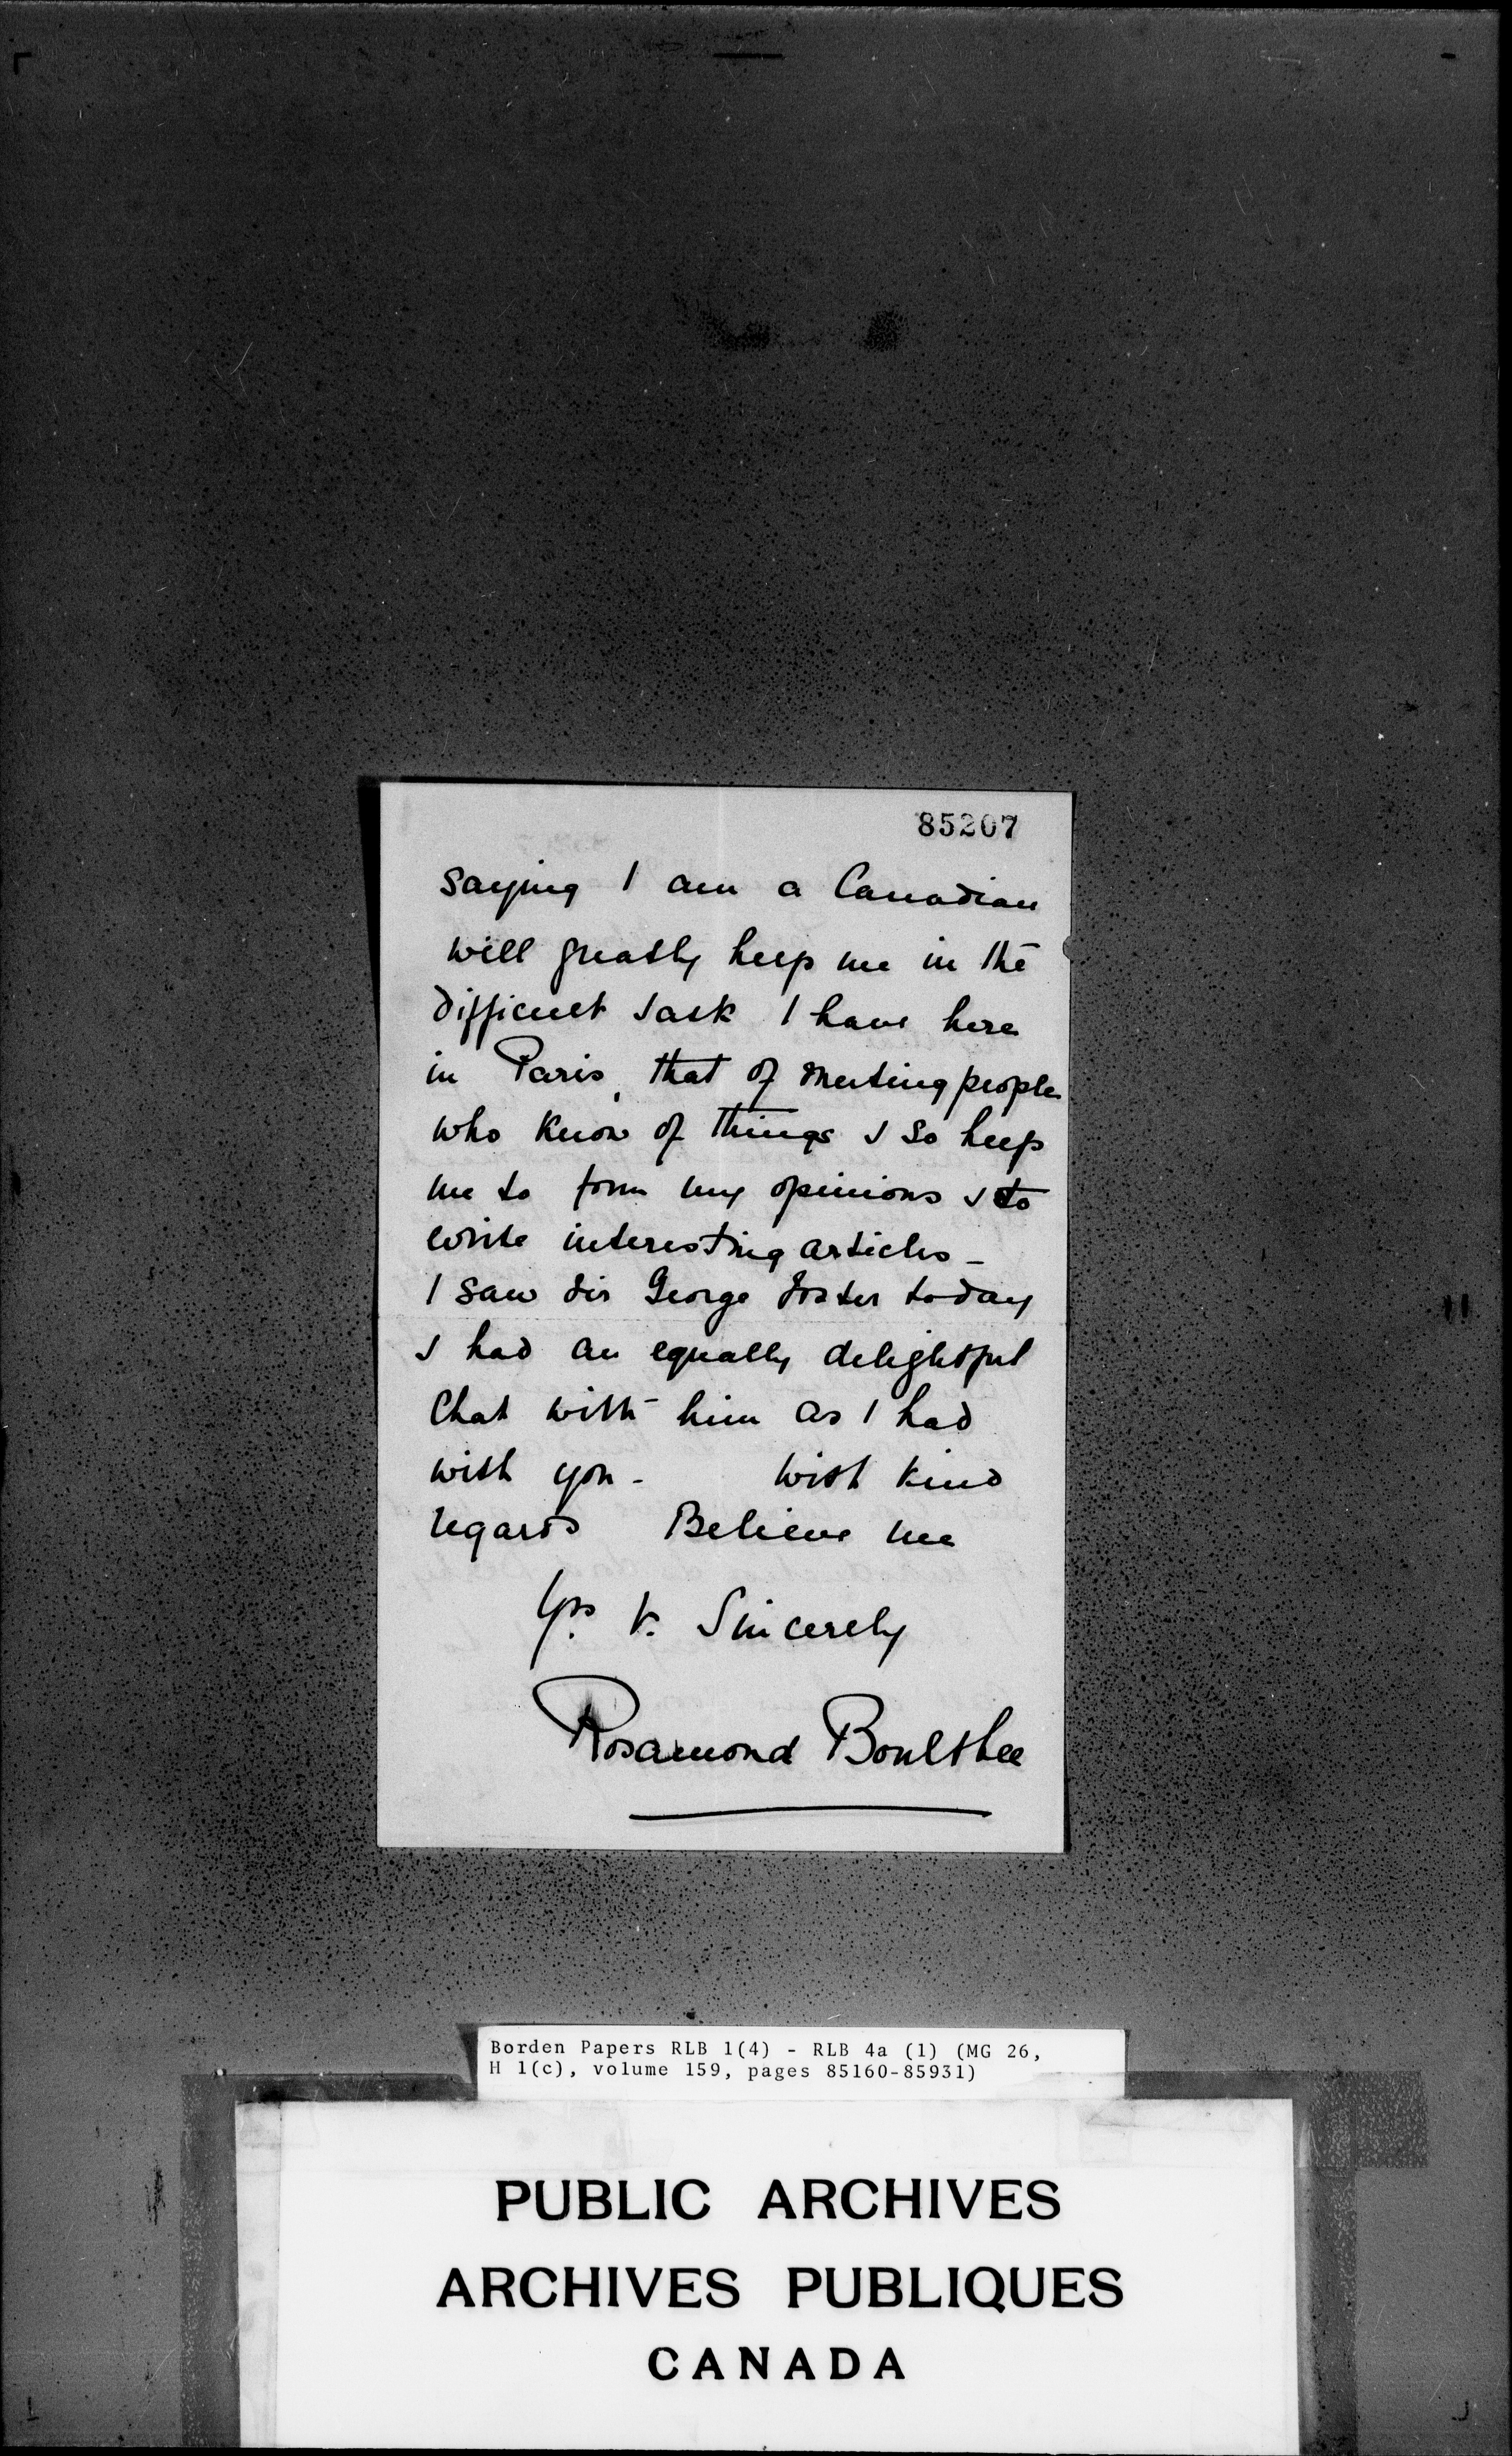 85207
saying I am a Canadian
will greatly help me in the
difficult task I have here
in Paris, that of meeting people
who know of things & so help
me to form my opinions & to
write interesting articles -
I saw Sir George Foster today
& had an equally delightful
chat with him as I had
with you - With kind
regards Believe me
Yrs. v. Sincerely
Rosamond Boultbee
Borden Papers RLB 1(4) - RLB 4a (1) (MG 26,
H 1(c), volume 159, pages 85160-85931)
PUBLIC ARCHIVES
ARCHIVES PUBLIQUES
CANADA